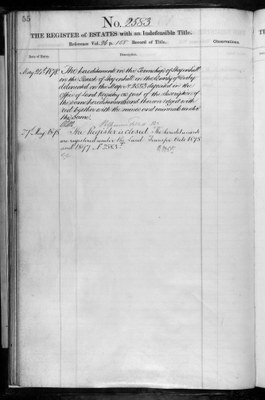 55
No. 2553
THE REGISTER of ESTATES with an Indefeasible Title.
Reference Vol. Record of Title.
Date of Entry. Description. Observations.
May 21st 1872 The hereditaments in the Township of
in the Parish of in the County of Derby
delineated on the Map No 2553 deposited in the
Office of Land Registry as part of the description of
the said hereditaments and thereon edged with
red together with the mines and minerals under
the same.
27 May 1898 The Register is closed. The hereditaments
are registered under the Land Transfer Acts 1875
and 1897 No 2553.